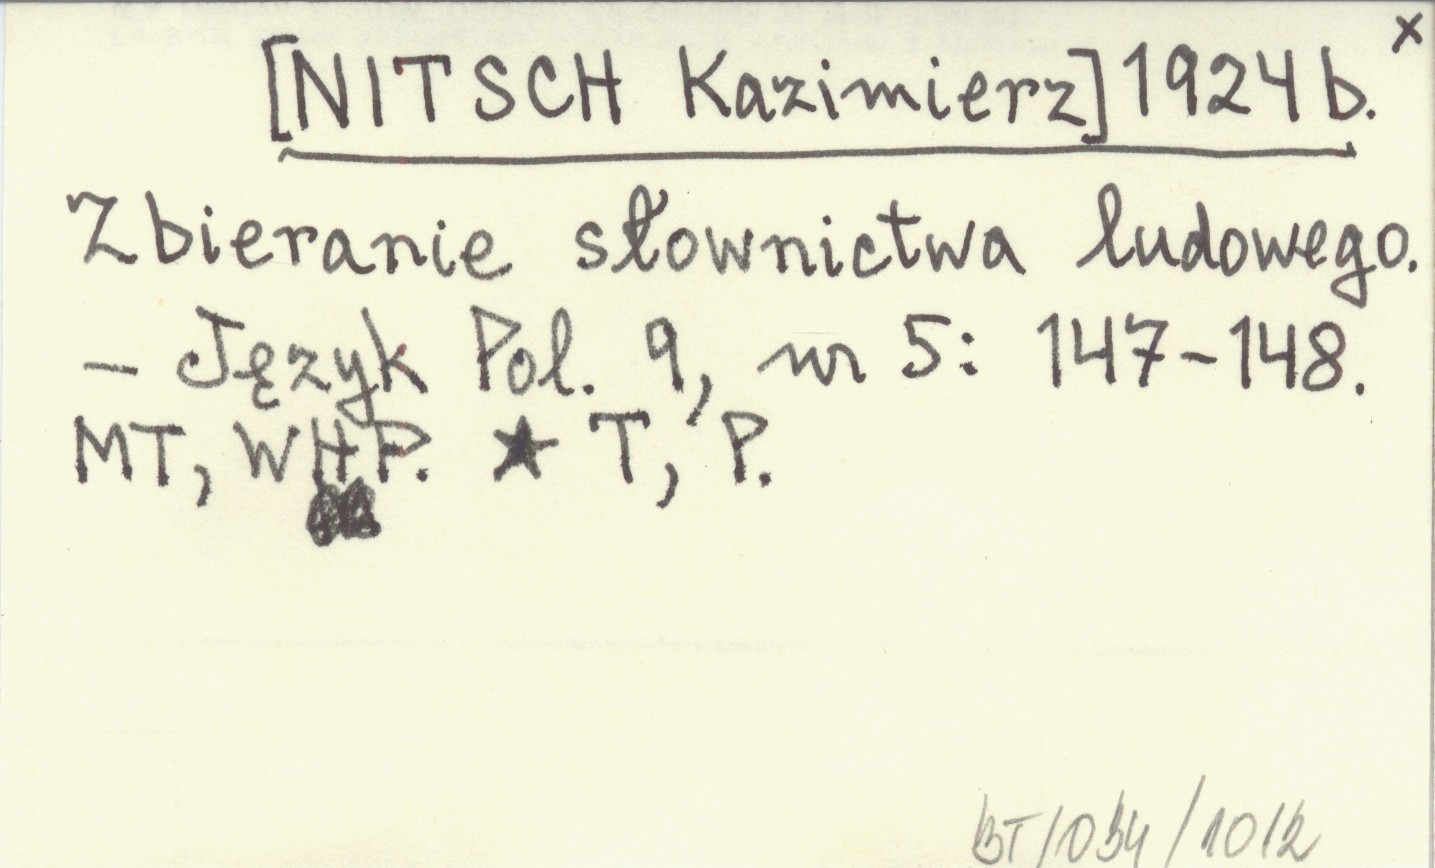 x
[NITSCH Kazimierz] 1924 b.
Zbieranie słownictwa ludowego.
– Język Pol. 9, nr 5: 147–148.
MT, WHP. ★ T, P.